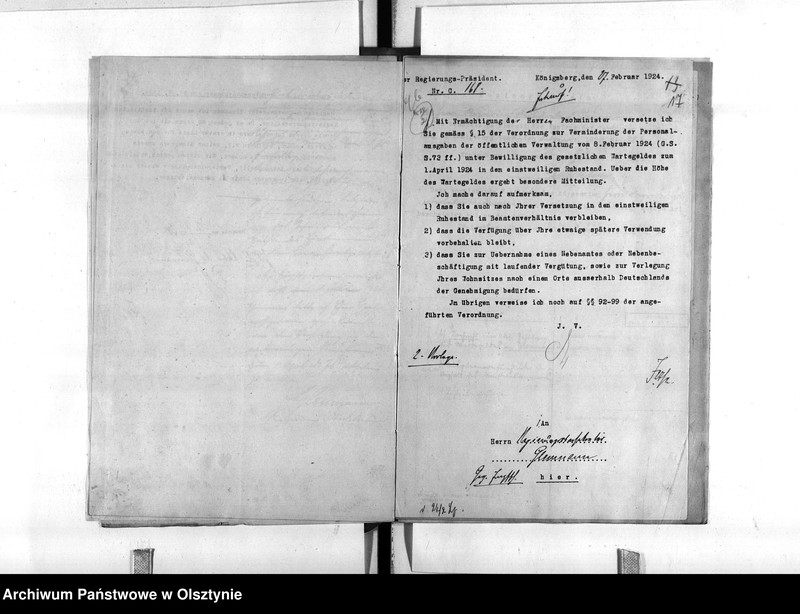 er Regierungs-Präsident.
Königsberg, den 07. Februar 1924.
Nr. G. 161.
17
Mit Ermächtigung der Herren Fachminister versetze ich
Sie gemäss § 15 der Verordnung zur Verminderung der Personal-
ausgaben der öffentlichen Verwaltung vom 8.Februar 1924 (G.S.
S.73 ff.) unter Bewilligung des gesetzlichen Wartegeldes zum
1.April 1924 in den einstweiligen Ruhestand. Ueber die Höhe
des Wartegeldes ergeht besondere Mitteilung.
Jch mache darauf aufmerksam,
1) dass Sie auch nach Jhrer Versetzung in den einstweiligen
Ruhestand im Beamtenverhältnis verbleiben,
2) dass die Verfügung über Jhre etwaige spätere Verwendung
vorbehalten bleibt,
3) dass Sie zur Uebernahme eines Nebenamtes oder Nebenbe-
schäftigung mit laufender Vergütung, sowie zur Verlegung
Jhres Wohnsitzes nach einem Orte ausserhalb Deutschlands
der Genehmigung bedürfen.
Jn übrigen verweise ich noch auf §§ 92-99 der ange-
führten Verordnung.
J. V.
2. Vorlage.
An
Herrn
hier.
Archiwum Państwowe w Olsztynie